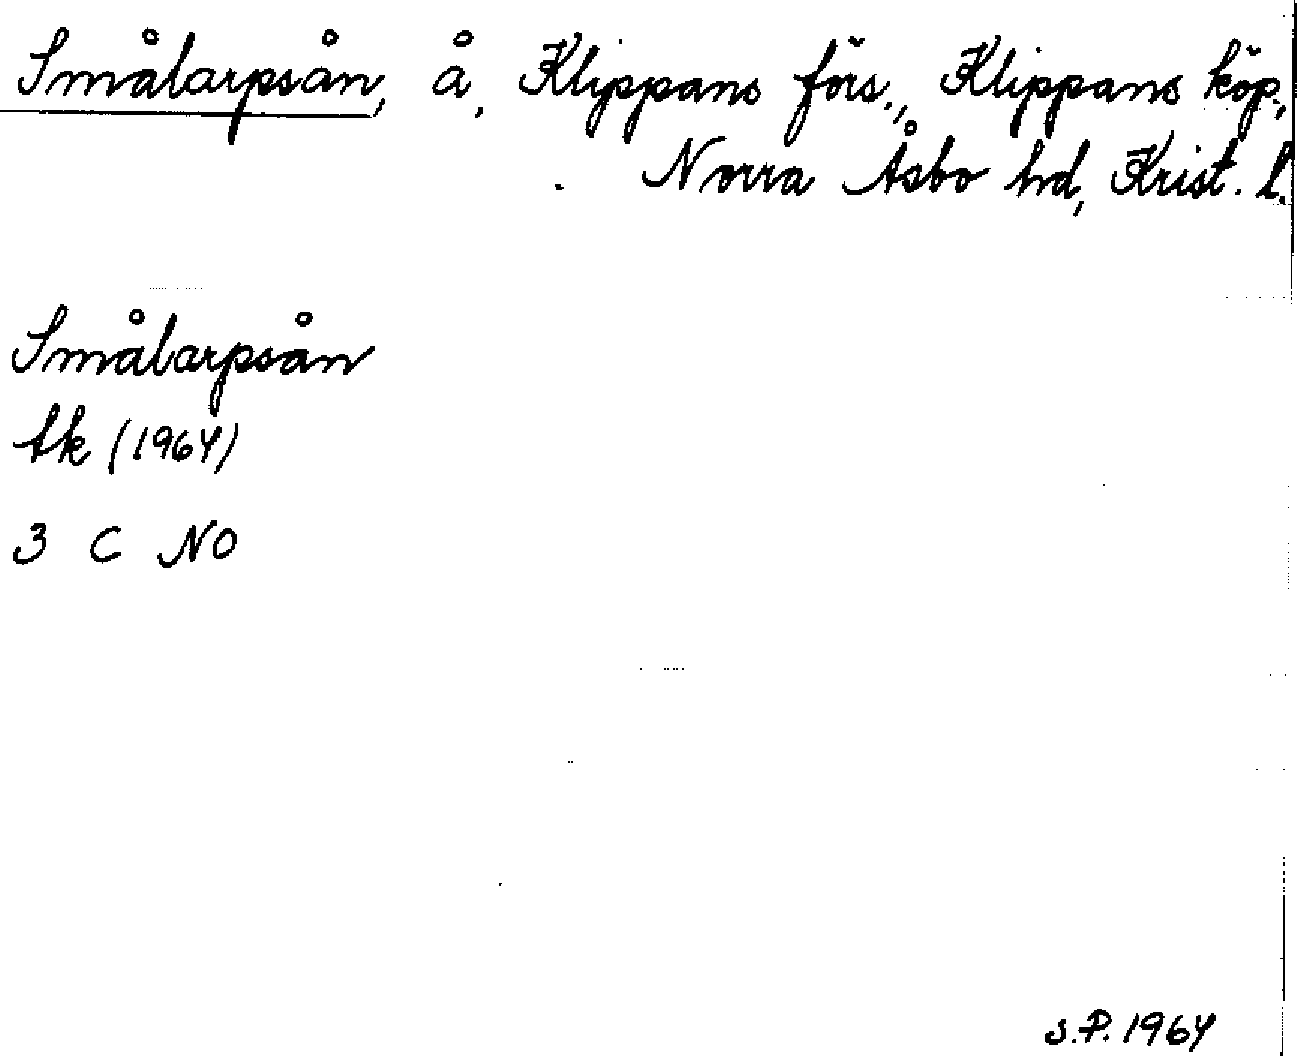 Smålarpsån, å, Klippans förs., Klippans köp.,
Norra Åsbo hd, Krist. l.
Smålarpsån
tk (1964)
3 C NO
S.P. 1964